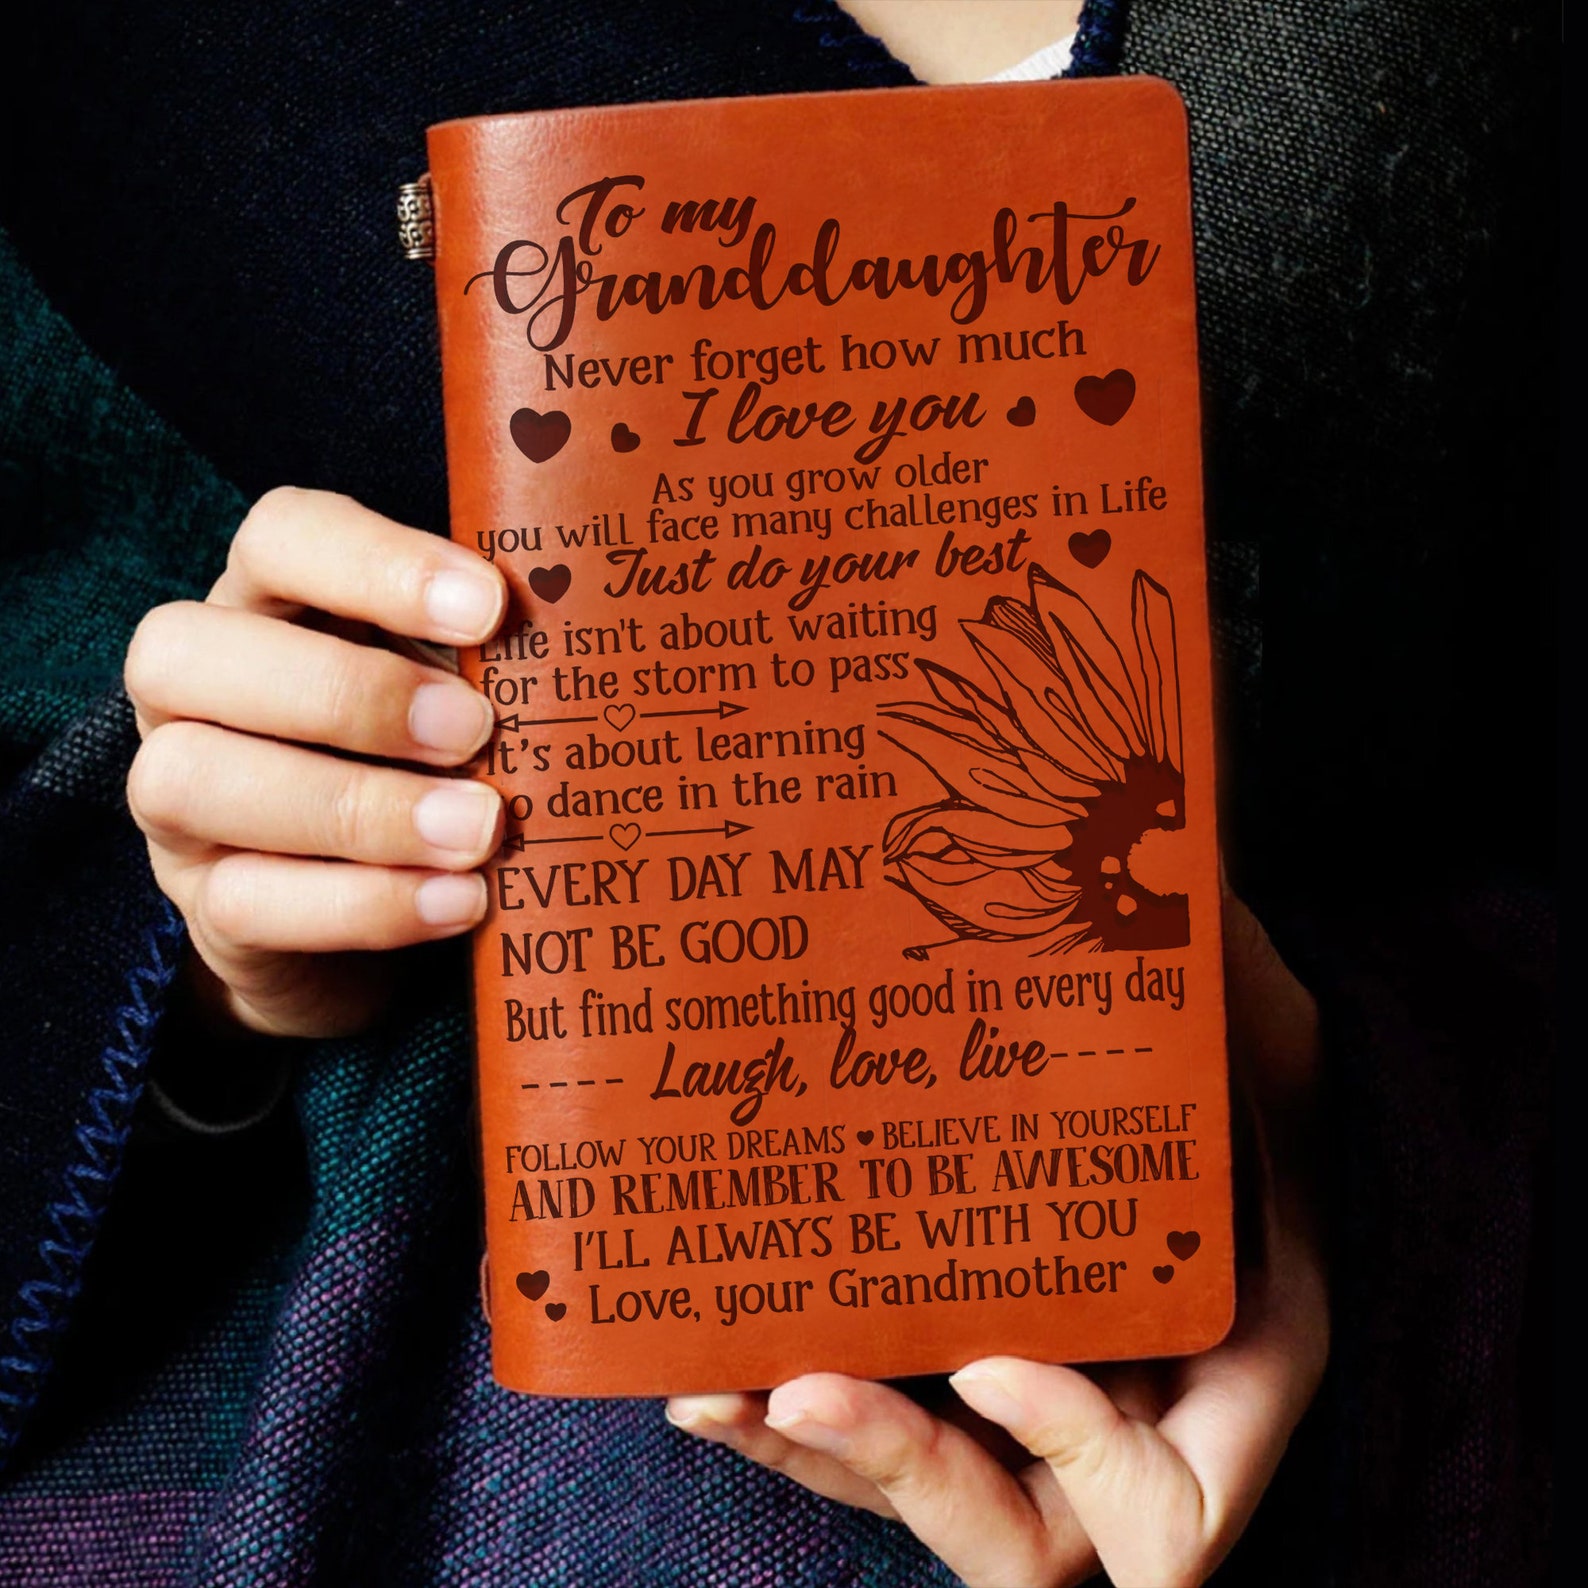 To my
Granddaughter
Never forget how much
I love you
As you grow older
you will face many challenges in Life
Just do your best
Life isn't about waiting
for the storm to pass
It's about learning
to dance in the rain
EVERY DAY MAY
NOT BE GOOD
But find something good in every day
---- Laugh, love, live----
FOLLOW YOUR DREAMS ♥ BELIEVE IN YOURSELF
AND REMEMBER TO BE AWESOME
I'LL ALWAYS BE WITH YOU
Love, your Grandmother